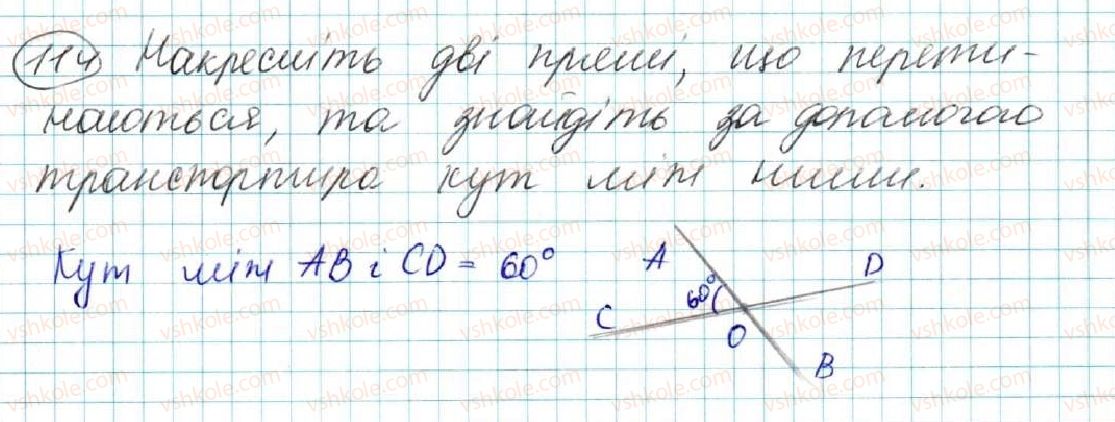 114 Накресліть дві прямі, що перети-
наються, та знайдіть за допомогою
транспортира кут між ними.
Кут між AB і CD = 60°
A
D
60°
C
O
B